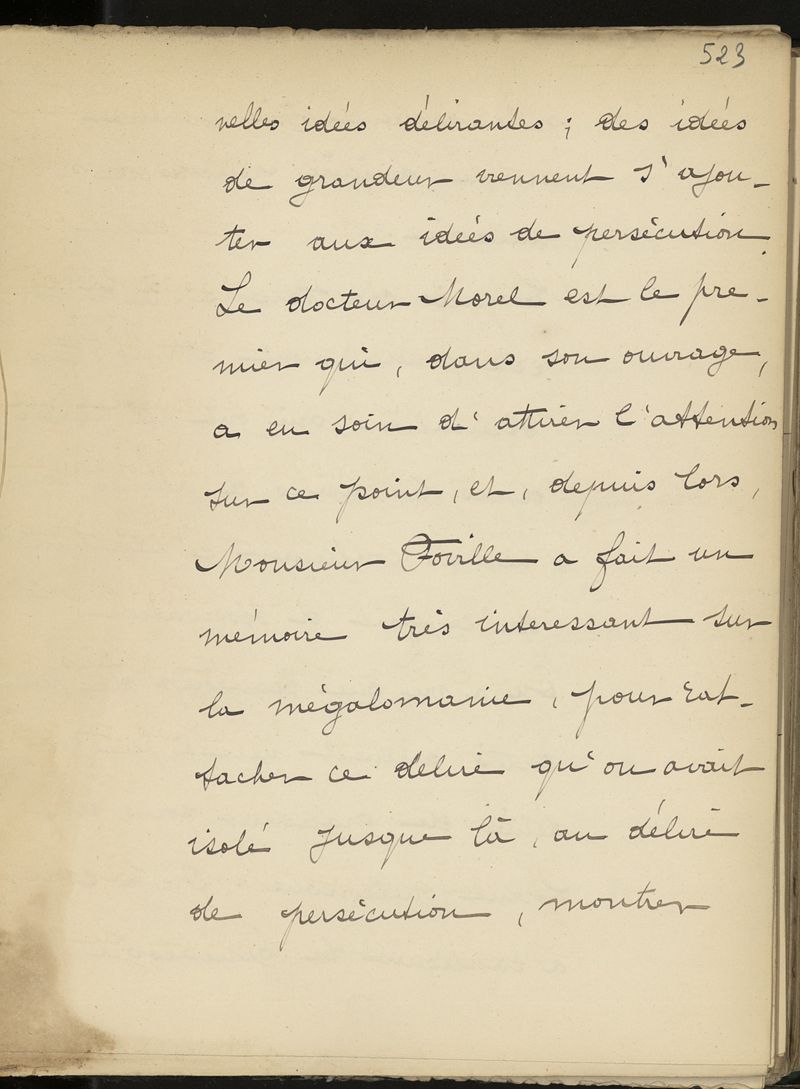 523
velles idées délirantes ; des idées
de grandeur viennent s'ajou-
ter aux idées de persécution.
Le docteur Morel est le pre-
mier qui, dans son ouvrage,
a eu soin d'attirer l'attention
sur ce point, et, depuis lors,
Monsieur Foville a fait un
mémoire très interessant sur
la mégalomanie, pour rat-
tacher ce delire qu'on avait
isolé jusque là, au délire
de persécution, montrer